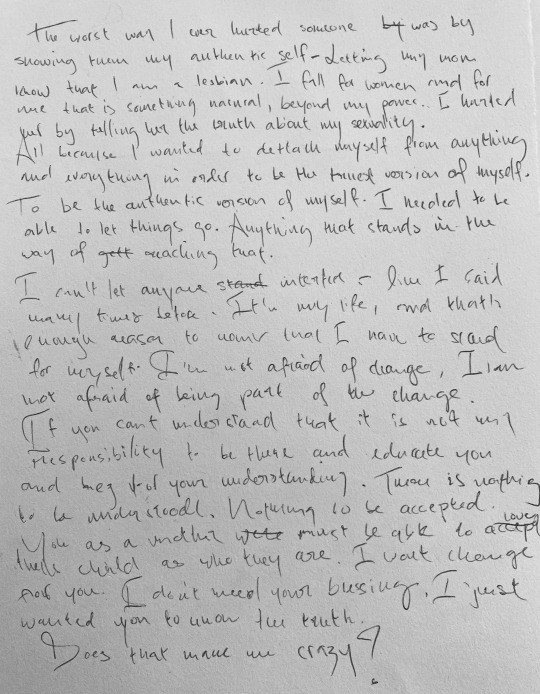 The worst way I ever hurted someone by was by
showing them my authentic self - Letting my mom
know that I am a lesbian. I fall for women and for
me that is something natural, beyond my power. I hurted
her by telling her the truth about my sexuality.
All because I wanted to detach myself from anything
and everything in order to be the truest version of myself.
To be the authentic version of myself. I needed to be
able to let things go. Anything that stands in the
way of gett reaching that.
I can't let anyone stand interfer - like I said
many times before. It's my life, and that's
enough reason to know that I have to stand
for myself. I'm not afraid of change, I am
not afraid of being part of the change.
If you can't understand that it is not my
responsibility to be there and educate you
and beg for your understanding. There is nothing
to be understood. Nothing to be accepted.
You as a mother were must be able to accept love
their child as who they are. I won't change
for you. I don't need your blessing, I just
wanted you to know the truth.
Does that make me crazy?